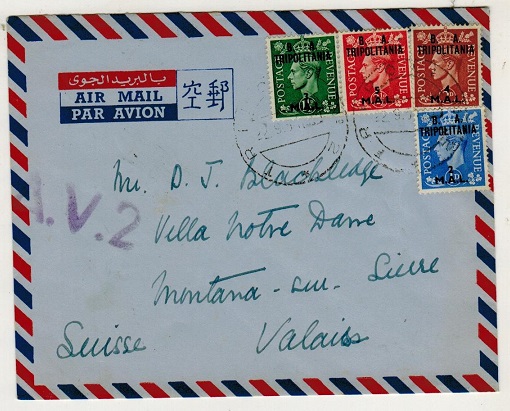 بالبريد الجوى
AIR MAIL
PAR AVION
空郵
B. A.
TRIPOLITANIA
M.A.L.
POSTAGE
REVENUE
B. A.
TRIPOLITANIA
M.A.L.
POSTAGE
REVENUE
B. A.
TRIPOLITANIA
M.A.L.
POSTAGE
REVENUE
B. A.
TRIPOLITANIA
M.A.L.
POSTAGE
REVENUE
A.V.2
Mr. D. J. Blackledge
Villa Notre Dame
Montana-sur-Sierre
Suisse Valais